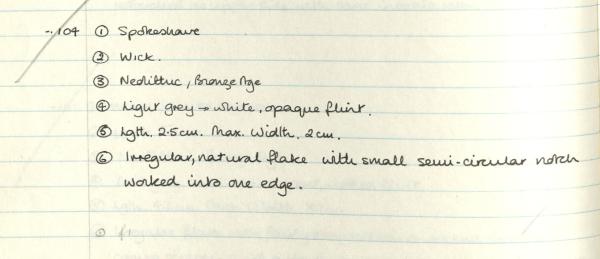 -.104 ① Spokeshave
② Wick.
③ Neolithic, Bronze Age
④ Light grey → white, opaque flint.
⑤ Lgth. 2.5cm. Max. Width. 2cm.
⑥ Irregular, natural flake with small semi-circular notch
worked into one edge.